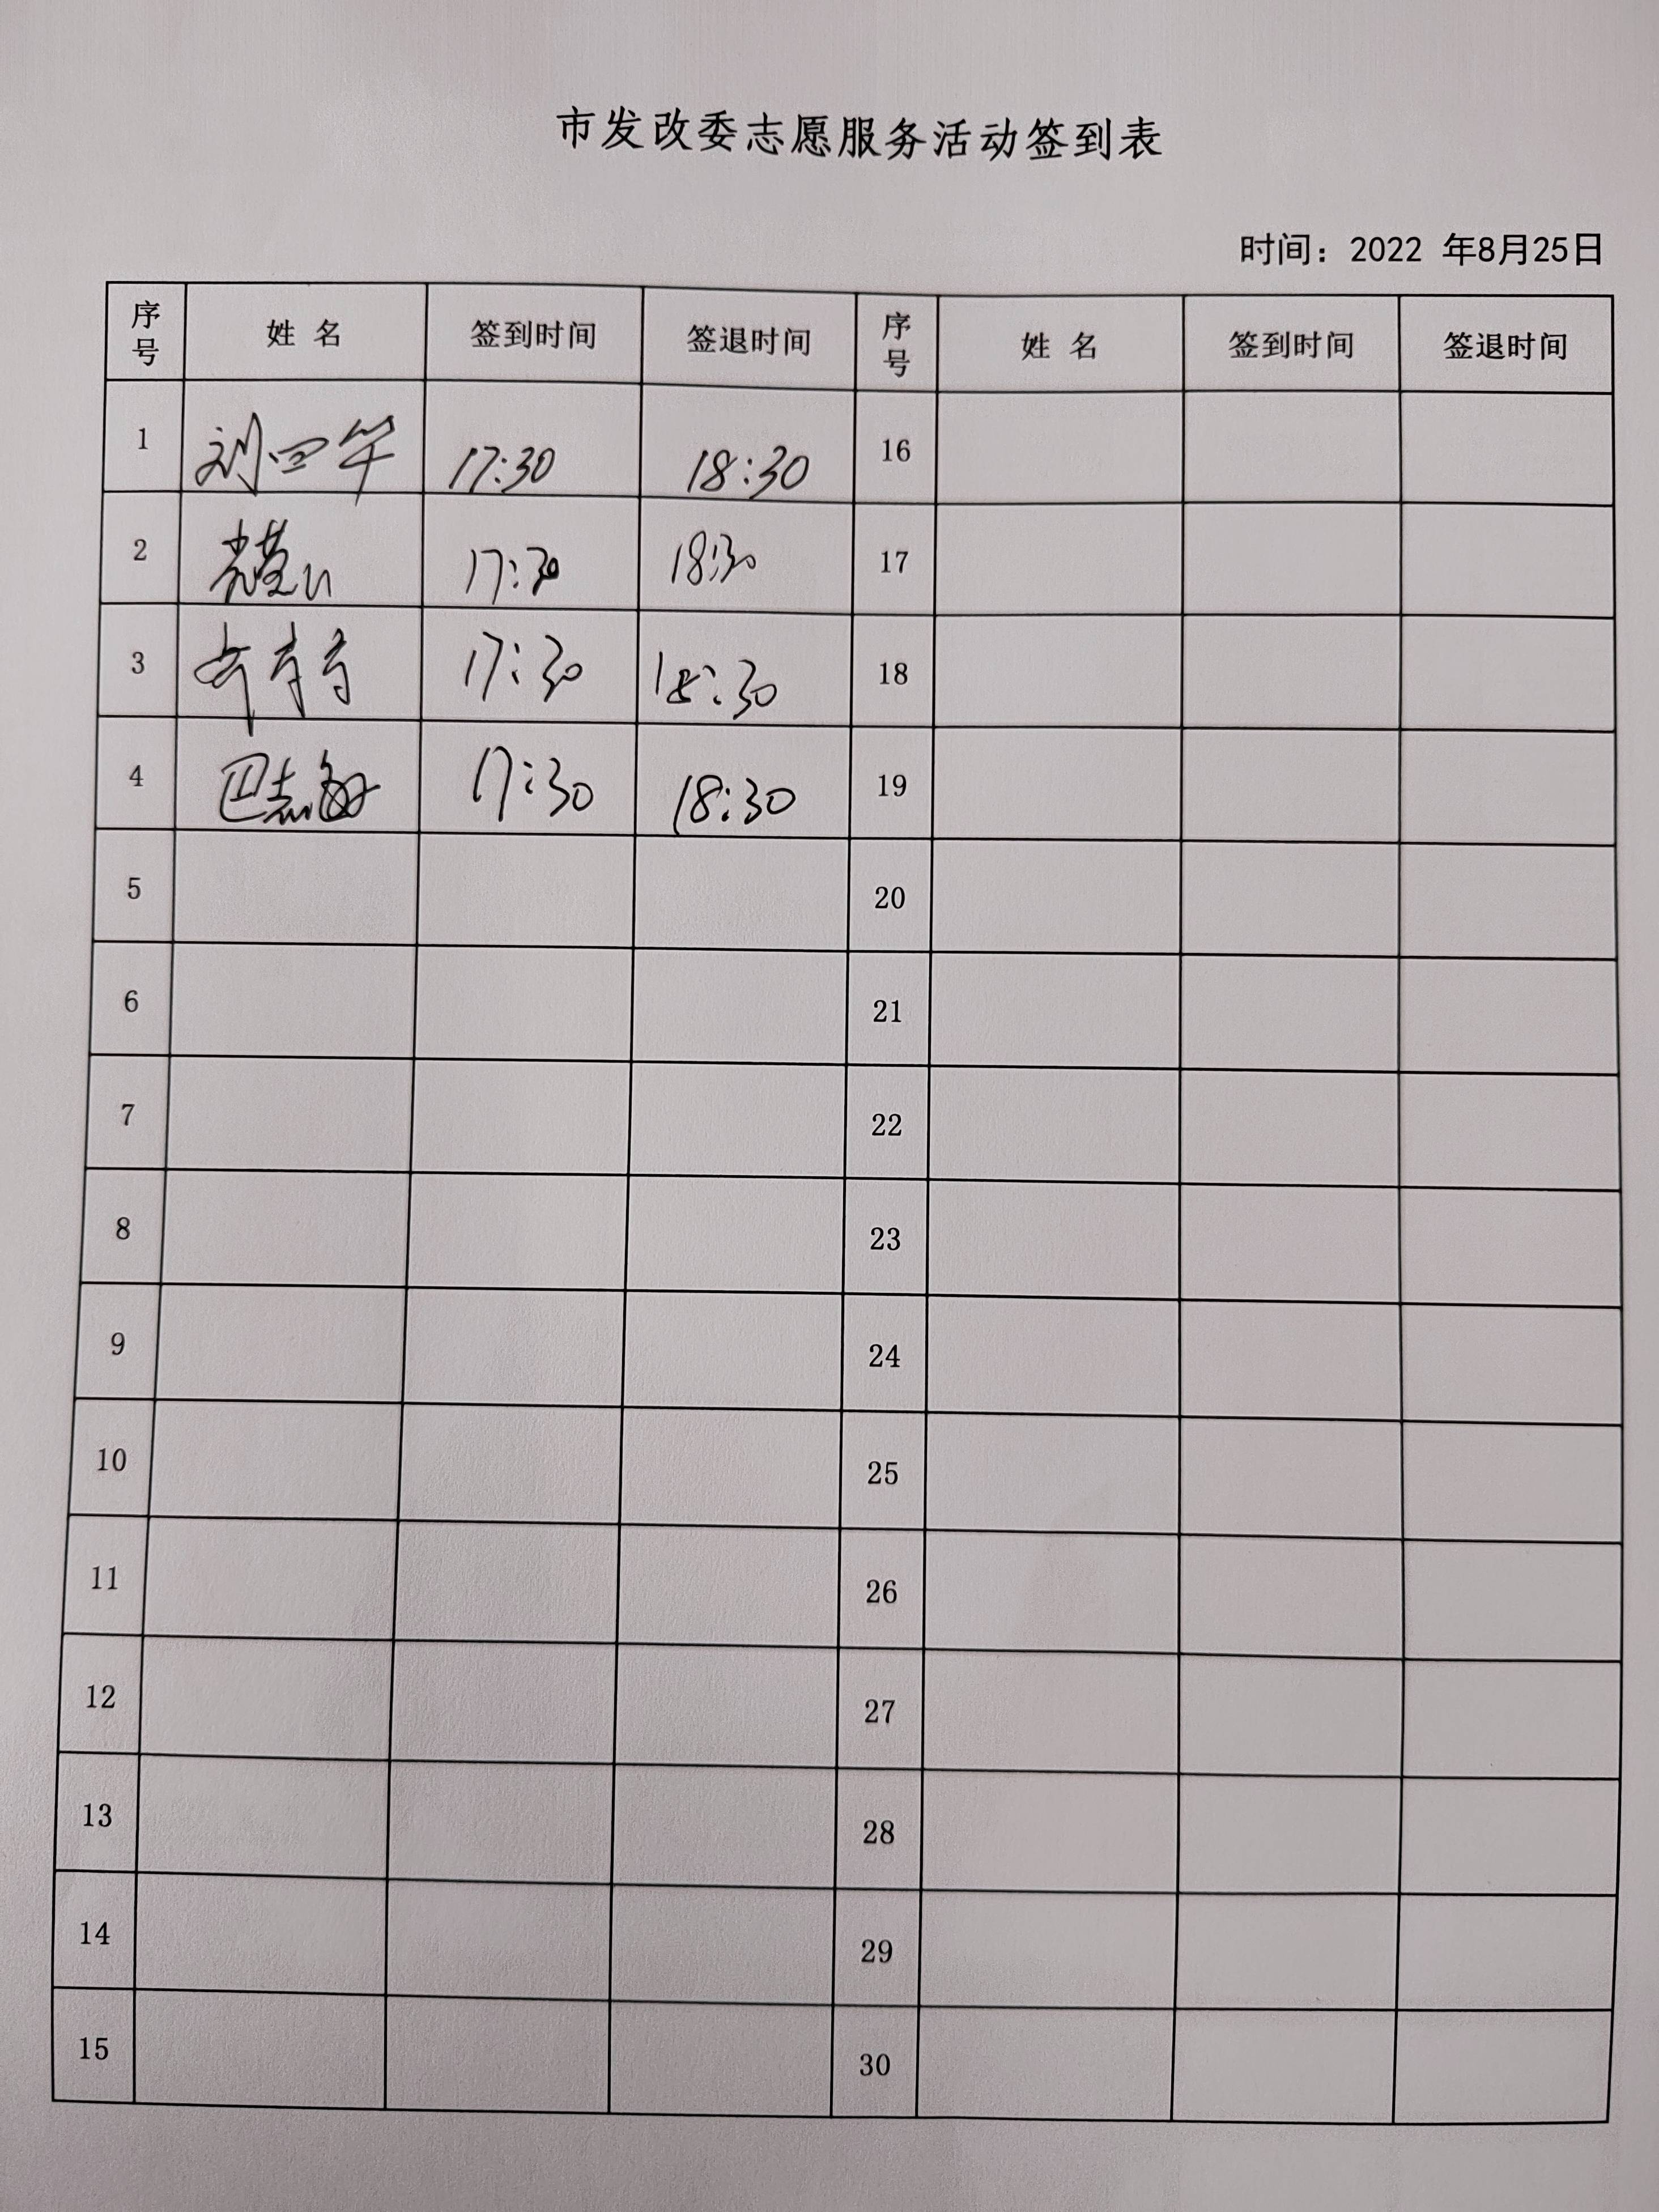 市发改委志愿服务活动签到表
时间：2022 年8月25日
序号 姓 名 签到时间 签退时间 序号 姓 名 签到时间 签退时间
1 刘四华 17:30 18:30 16
2 17:30 18:30 17
3 17:30 18:30 18
4 巴志敏 17:30 18:30 19
5 20
6 21
7 22
8 23
9 24
10 25
11 26
12 27
13 28
14 29
15 30